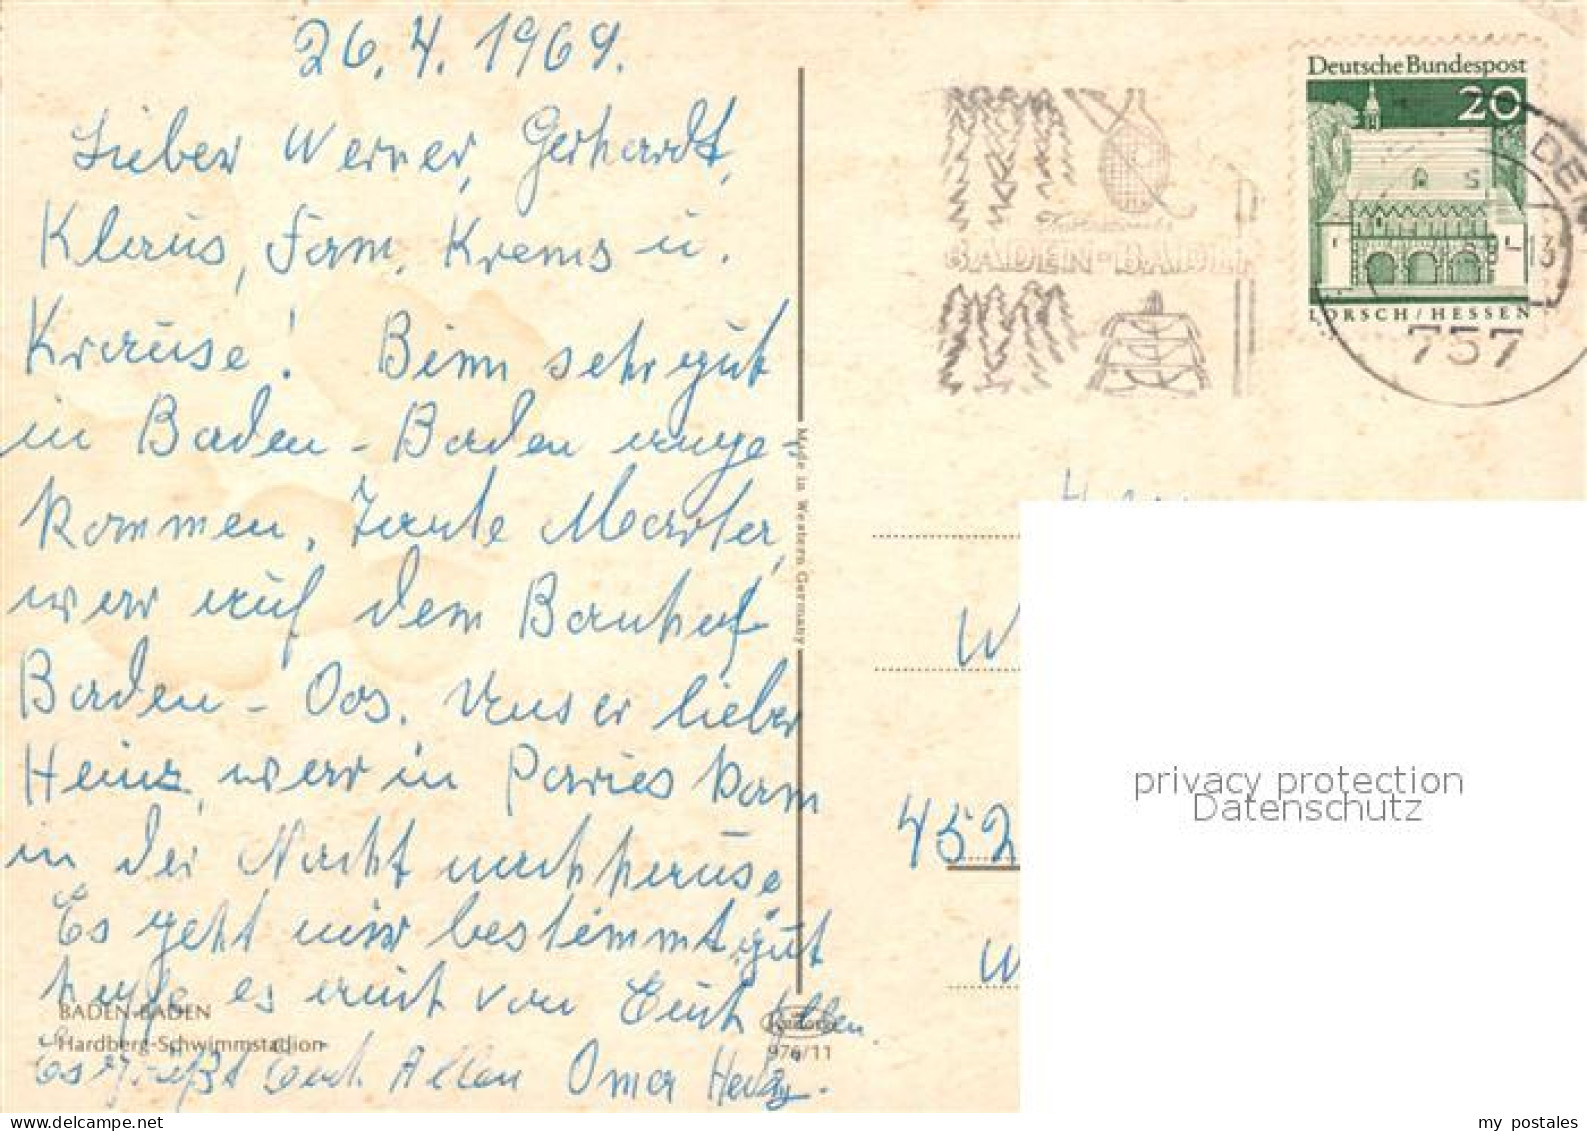 26.4.1969.
Lieber Werner, Gerhardt,
Klaus, Fam. Krems u.
Krause! Binn sehr gut
in Baden-Baden ange=
kommen, Tante Martha,
war auf dem Banhof
Baden-Oos. Unser lieber
Heinz, war in Paries kam
in der Nacht nachhause,
Es geht mir bestimmt gut
hoffe es auch von Euch allen.
Es grüßt Euch Allen Oma
BADEN-BADEN
Hardberg-Schwimmstadion
976/11
Made in Western Germany
BADEN-BADEN
Deutsche Bundespost
20
LORSCH/HESSEN
-13
757
W
452
W
privacy protection
Datenschutz
my postales